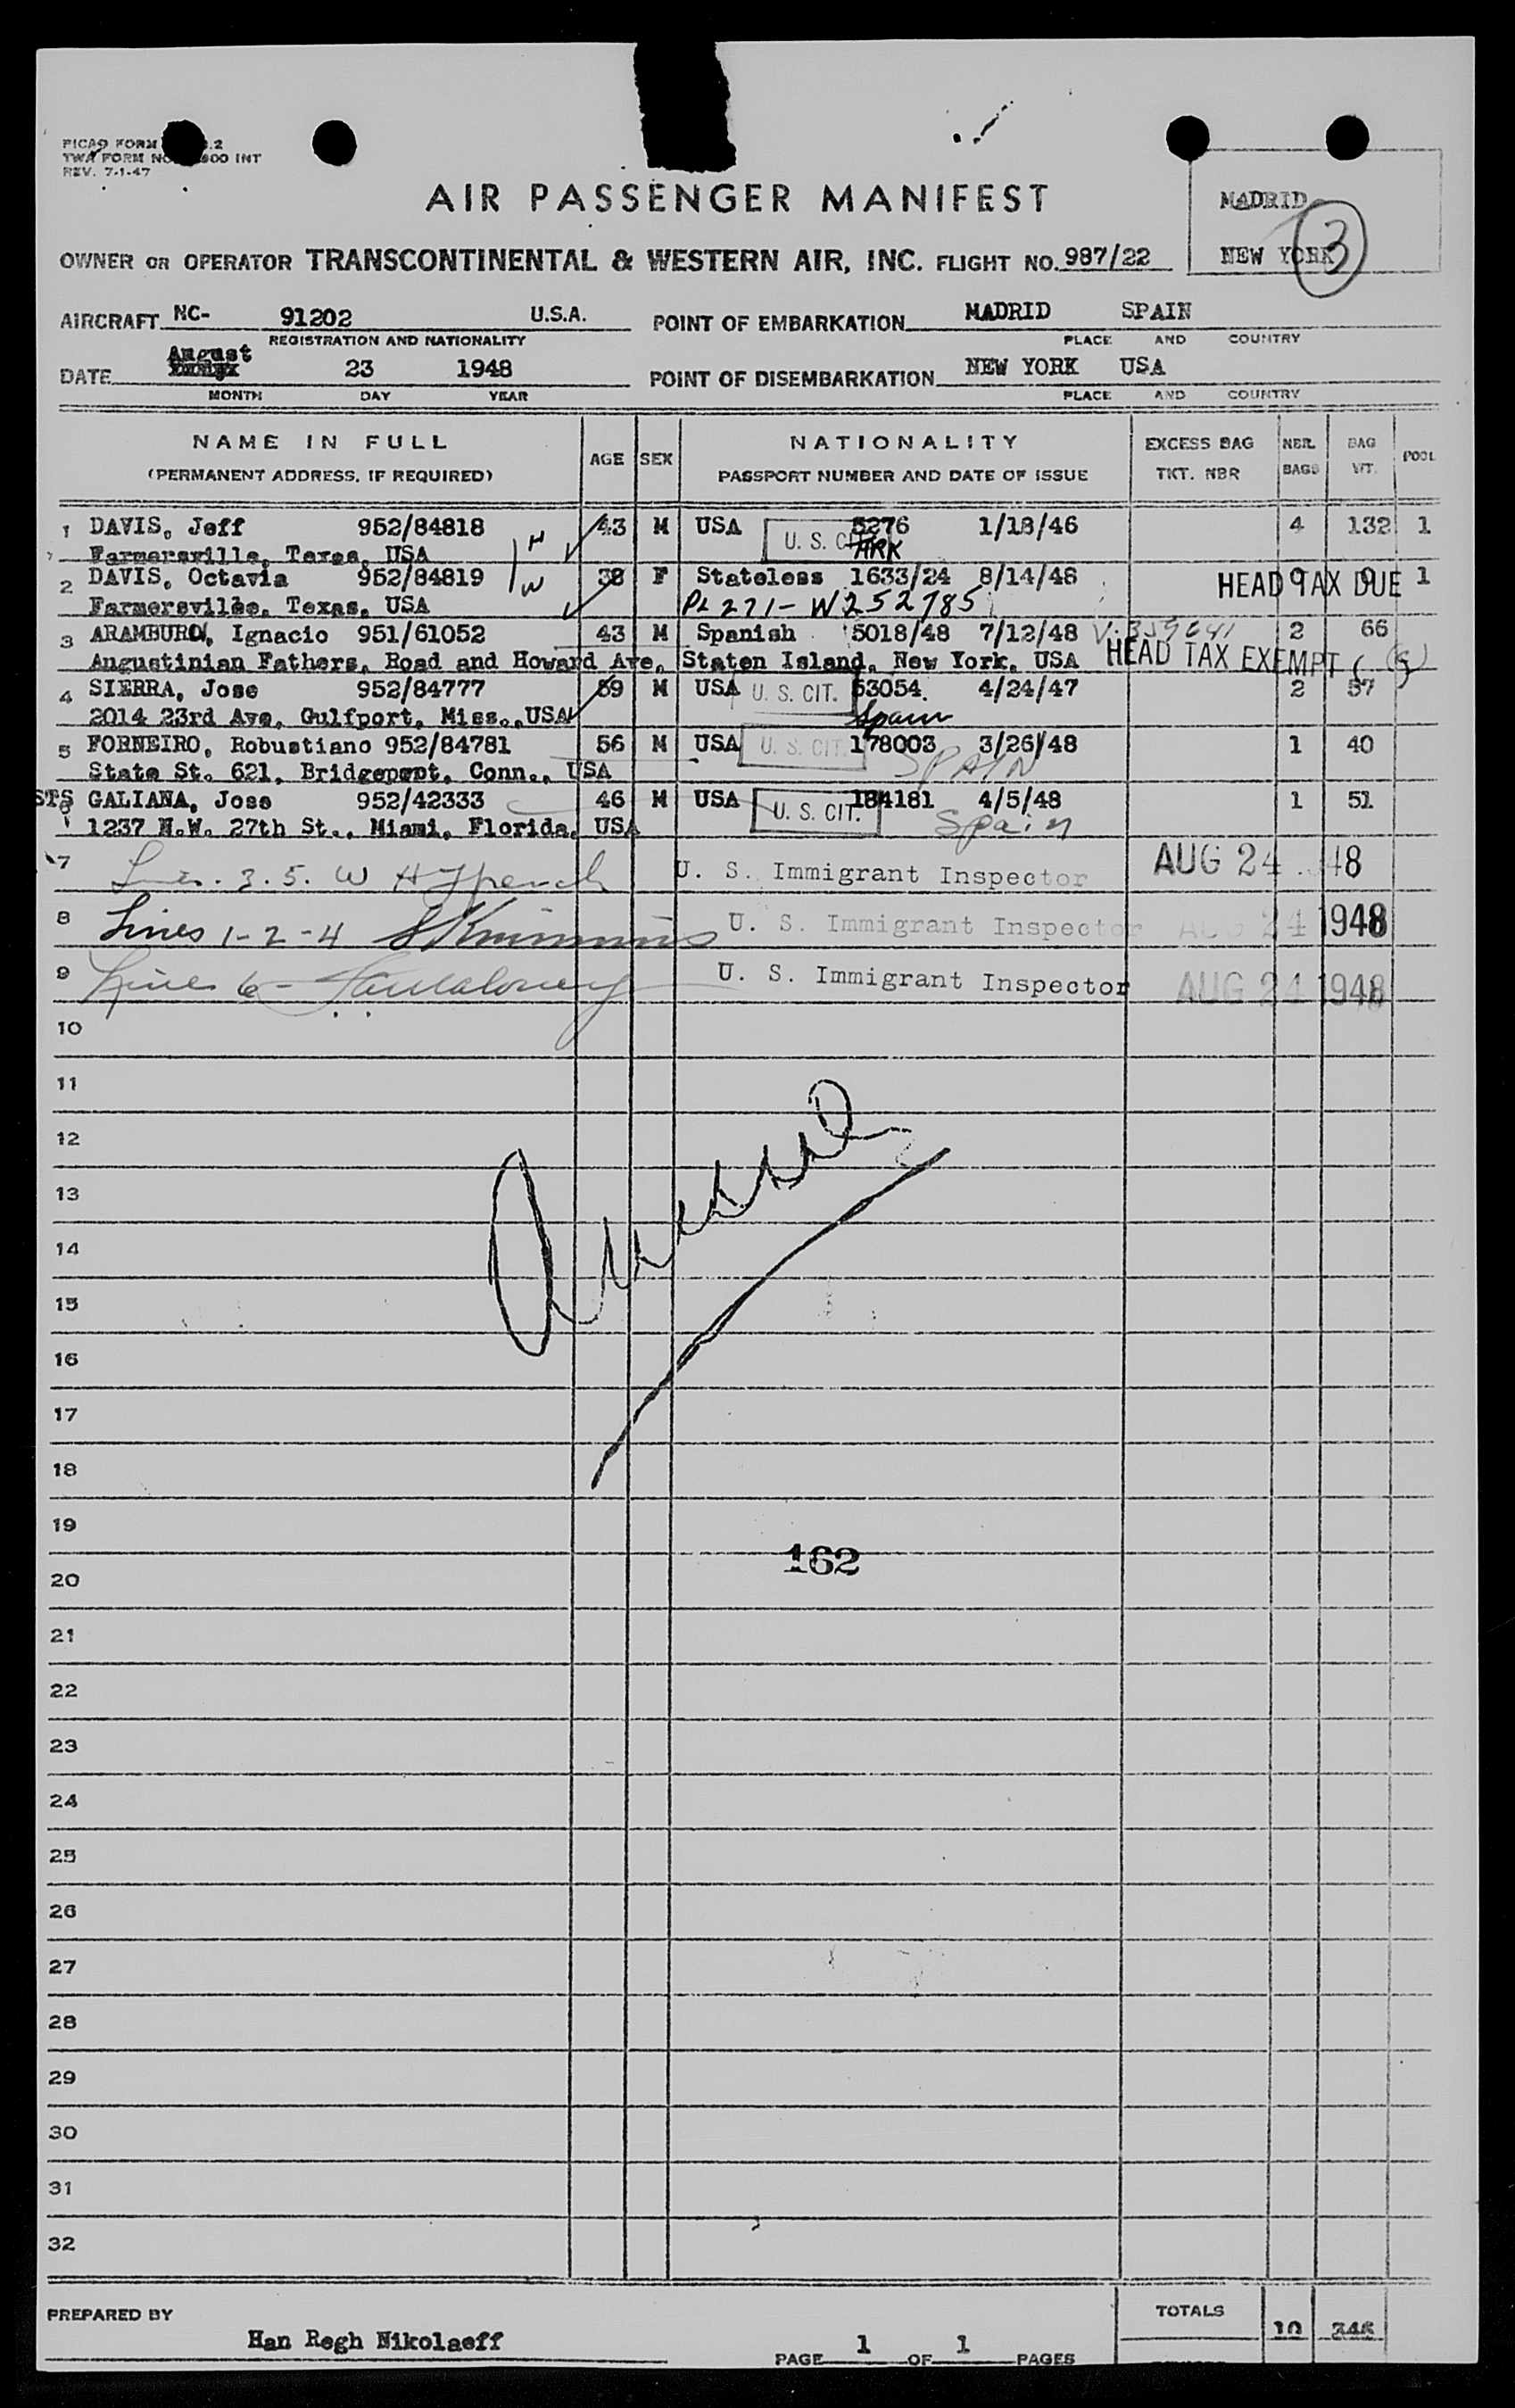 PICAO FORM .2
TWA FORM NO. 800 INT
REV. 7-1-47
AIR PASSENGER MANIFEST
MADRID
NEW YORK
3
OWNER OR OPERATOR TRANSCONTINENTAL & WESTERN AIR, INC. FLIGHT NO. 987/22
AIRCRAFT NC- 91202 U.S.A. POINT OF EMBARKATION MADRID SPAIN
REGISTRATION AND NATIONALITY PLACE AND COUNTRY
August
DATE 23 1948 POINT OF DISEMBARKATION NEW YORK USA
MONTH DAY YEAR PLACE AND COUNTRY
NAME IN FULL AGE SEX NATIONALITY EXCESS BAG NBR. BAG POOL
(PERMANENT ADDRESS, IF REQUIRED) PASSPORT NUMBER AND DATE OF ISSUE TKT. NBR BAGS WT.
1 DAVIS, Jeff 952/84818 H 43 M USA U. S. CIT. 5276 1/18/46 4 132 1
Farmersville, Texas, USA ARK
2 DAVIS, Octavia 952/84819 W 38 F Stateless 1633/24 8/14/48 HEAD TAX DUE 1
Farmersville, Texas, USA PL 271- W252785
3 ARAMBURU, Ignacio 951/61052 43 M Spanish 5018/48 7/12/48 V. 359641 2 66
Angustinian Fathers, Road and Howard Ave, Staten Island, New York, USA HEAD TAX EXEMPT
4 SIERRA, Jose 952/84777 59 M USA U. S. CIT. 53054. 4/24/47 2 57
2014 23rd Ave, Gulfport, Miss., USA Spain
5 FORNEIRO, Robustiano 952/84781 56 M USA U. S. CIT. 178003 3/26/48 1 40
State St. 621, Bridgeport, Conn., USA SPAIN
STS 6 GALIANA, Jose 952/42333 46 M USA U. S. CIT. 184181 4/5/48 1 51
1237 N.W. 27th St., Miami, Florida, USA Spain
7 3. 5. U. S. Immigrant Inspector AUG 24 48
8 Lines 1-2-4 U. S. Immigrant Inspector AUG 24 1948
9 Line 6- U. S. Immigrant Inspector AUG 24 1948
10
11
12
13
14
15
16
17
18
19
162
20
21
22
23
24
25
26
27
28
29
30
31
32
PREPARED BY TOTALS
Han Regh Nikolaeff 10 346
PAGE 1 OF 1 PAGES